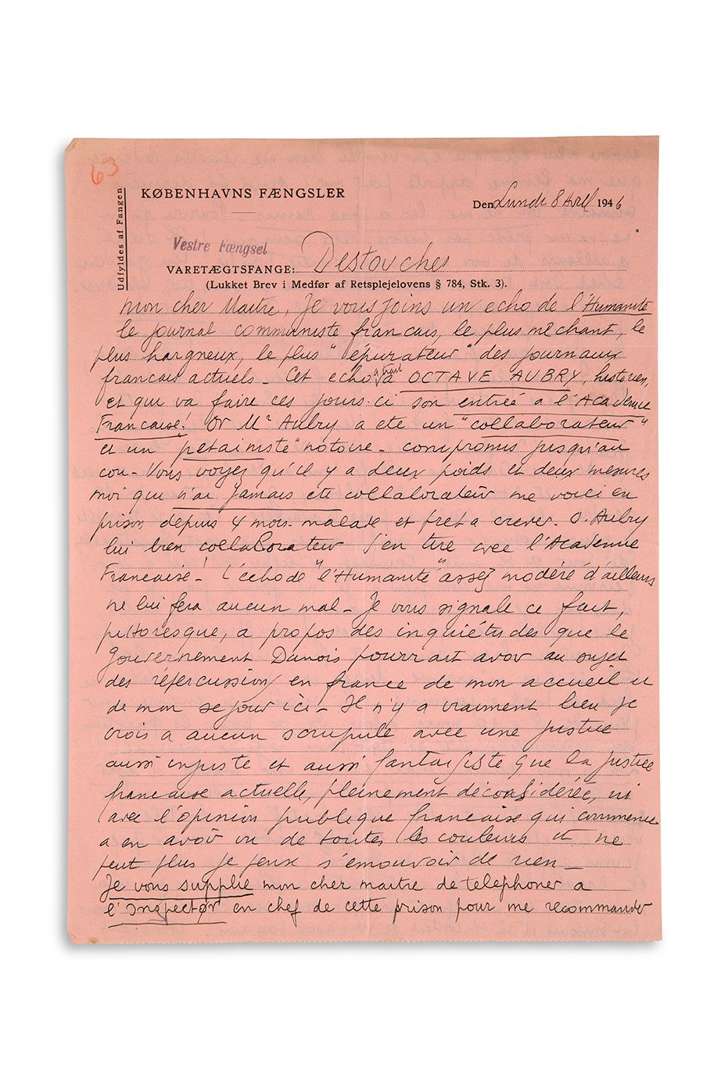 63
KØBENHAVNS FÆNGSLER
Den Lundi 8 Avril 1946
Udfyldes af Fangen
Vestre Fængsel
VARETÆGTSFANGE: Destouches
(Lukket Brev i Medfør af Retsplejelovens § 784, Stk. 3).
Mon cher Maitre, Je vous joins un echo de l'Humanité
le journal communiste francais, le plus méchant, le
plus hargneux, le plus "épurateur" des journaux
francais actuels - Cet echo OCTAVE AUBRY, historien,
et qui va faire ces jours-ci son entrée a l'Academie
Francaise. Or Mr Aubry a ete un "collaborateur"
et un "petainiste" notoire - compromis jusqu'au
cou - Vous voyez qu'il y a deux poids et deux mesures
moi que n'ai jamais ete collaborateur me voici en
prison depuis 4 mois malade et pret a crever. O. Aubry
lui bien collaborateur s'en tire avec l'Academie
Francaise! L'echo de "l'Humanité" assez modéré d'ailleurs
ne lui fera aucun mal - Je vous signale ce fait,
pittoresque, a propos des inquiétudes que le
Gouvernement Danois pourrait avoir au sujet
des répercussion en france de mon accueil et
de mon sejour ici - Il n'y a vraiment lieu je
crois a aucun scrupule avec une justice
aussi injuste et aussi fantaisiste que la justice
francaise actuelle, pleinement déconsidérée, ni
avec l'opinion publique francaise qui commence
a en avoir vu de toutes les couleurs et ne
peut plus je pense s'emouvoir de rien -
Je vous supplie mon cher maitre de telephoner a
l'Inspector en chef de cette prison pour me recommander